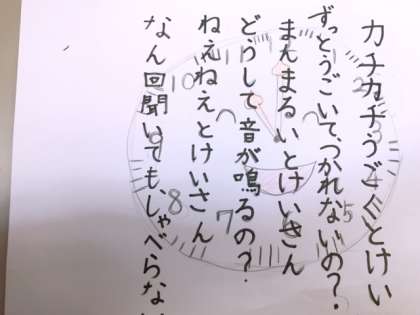 カチカチうごくとけい
ずっとうごいて、つかれないの？
まんまるいとけいさん
どうして音が鳴るの？
ねえねえとけいさん
なん回聞いても、しゃべらない
11
10
9
8
7
5
4
3
2